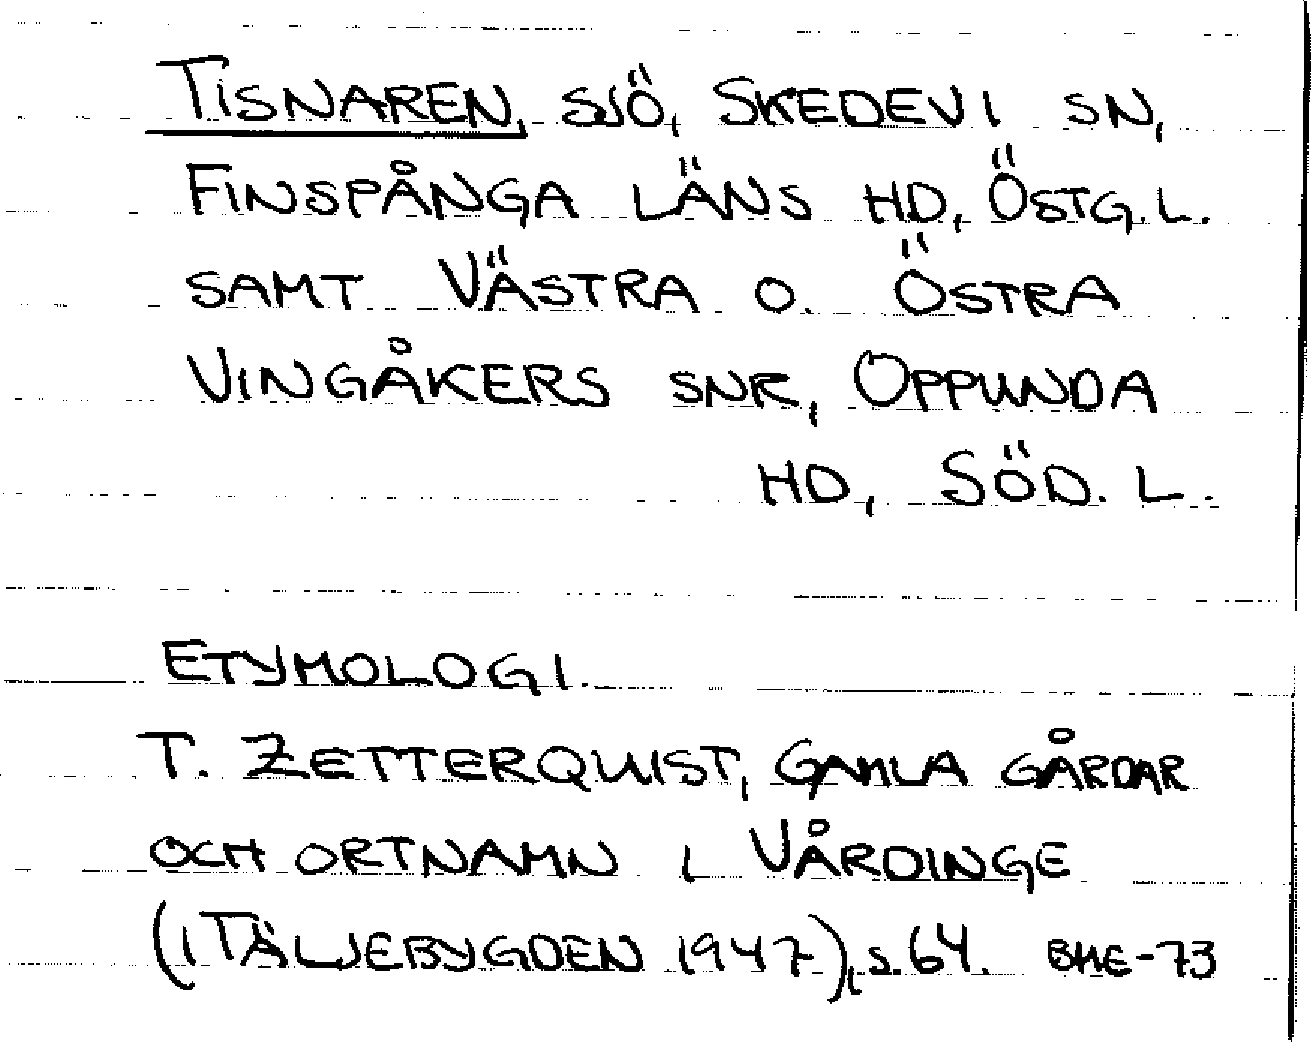 TISNAREN, SJÖ, SKEDEVI SN,
FINSPÅNGA LÄNS HD, ÖSTG.L.
SAMT VÄSTRA O. ÖSTRA
VINGÅKERS SNR, OPPUNDA
HD, SÖD. L.
ETYMOLOGI.
T. ZETTERQUIST, GAMLA GÅRDAR
OCH ORTNAMN I VÅRDINGE
(I TÄLJEBYGDEN 1947), S. 64. BME-73